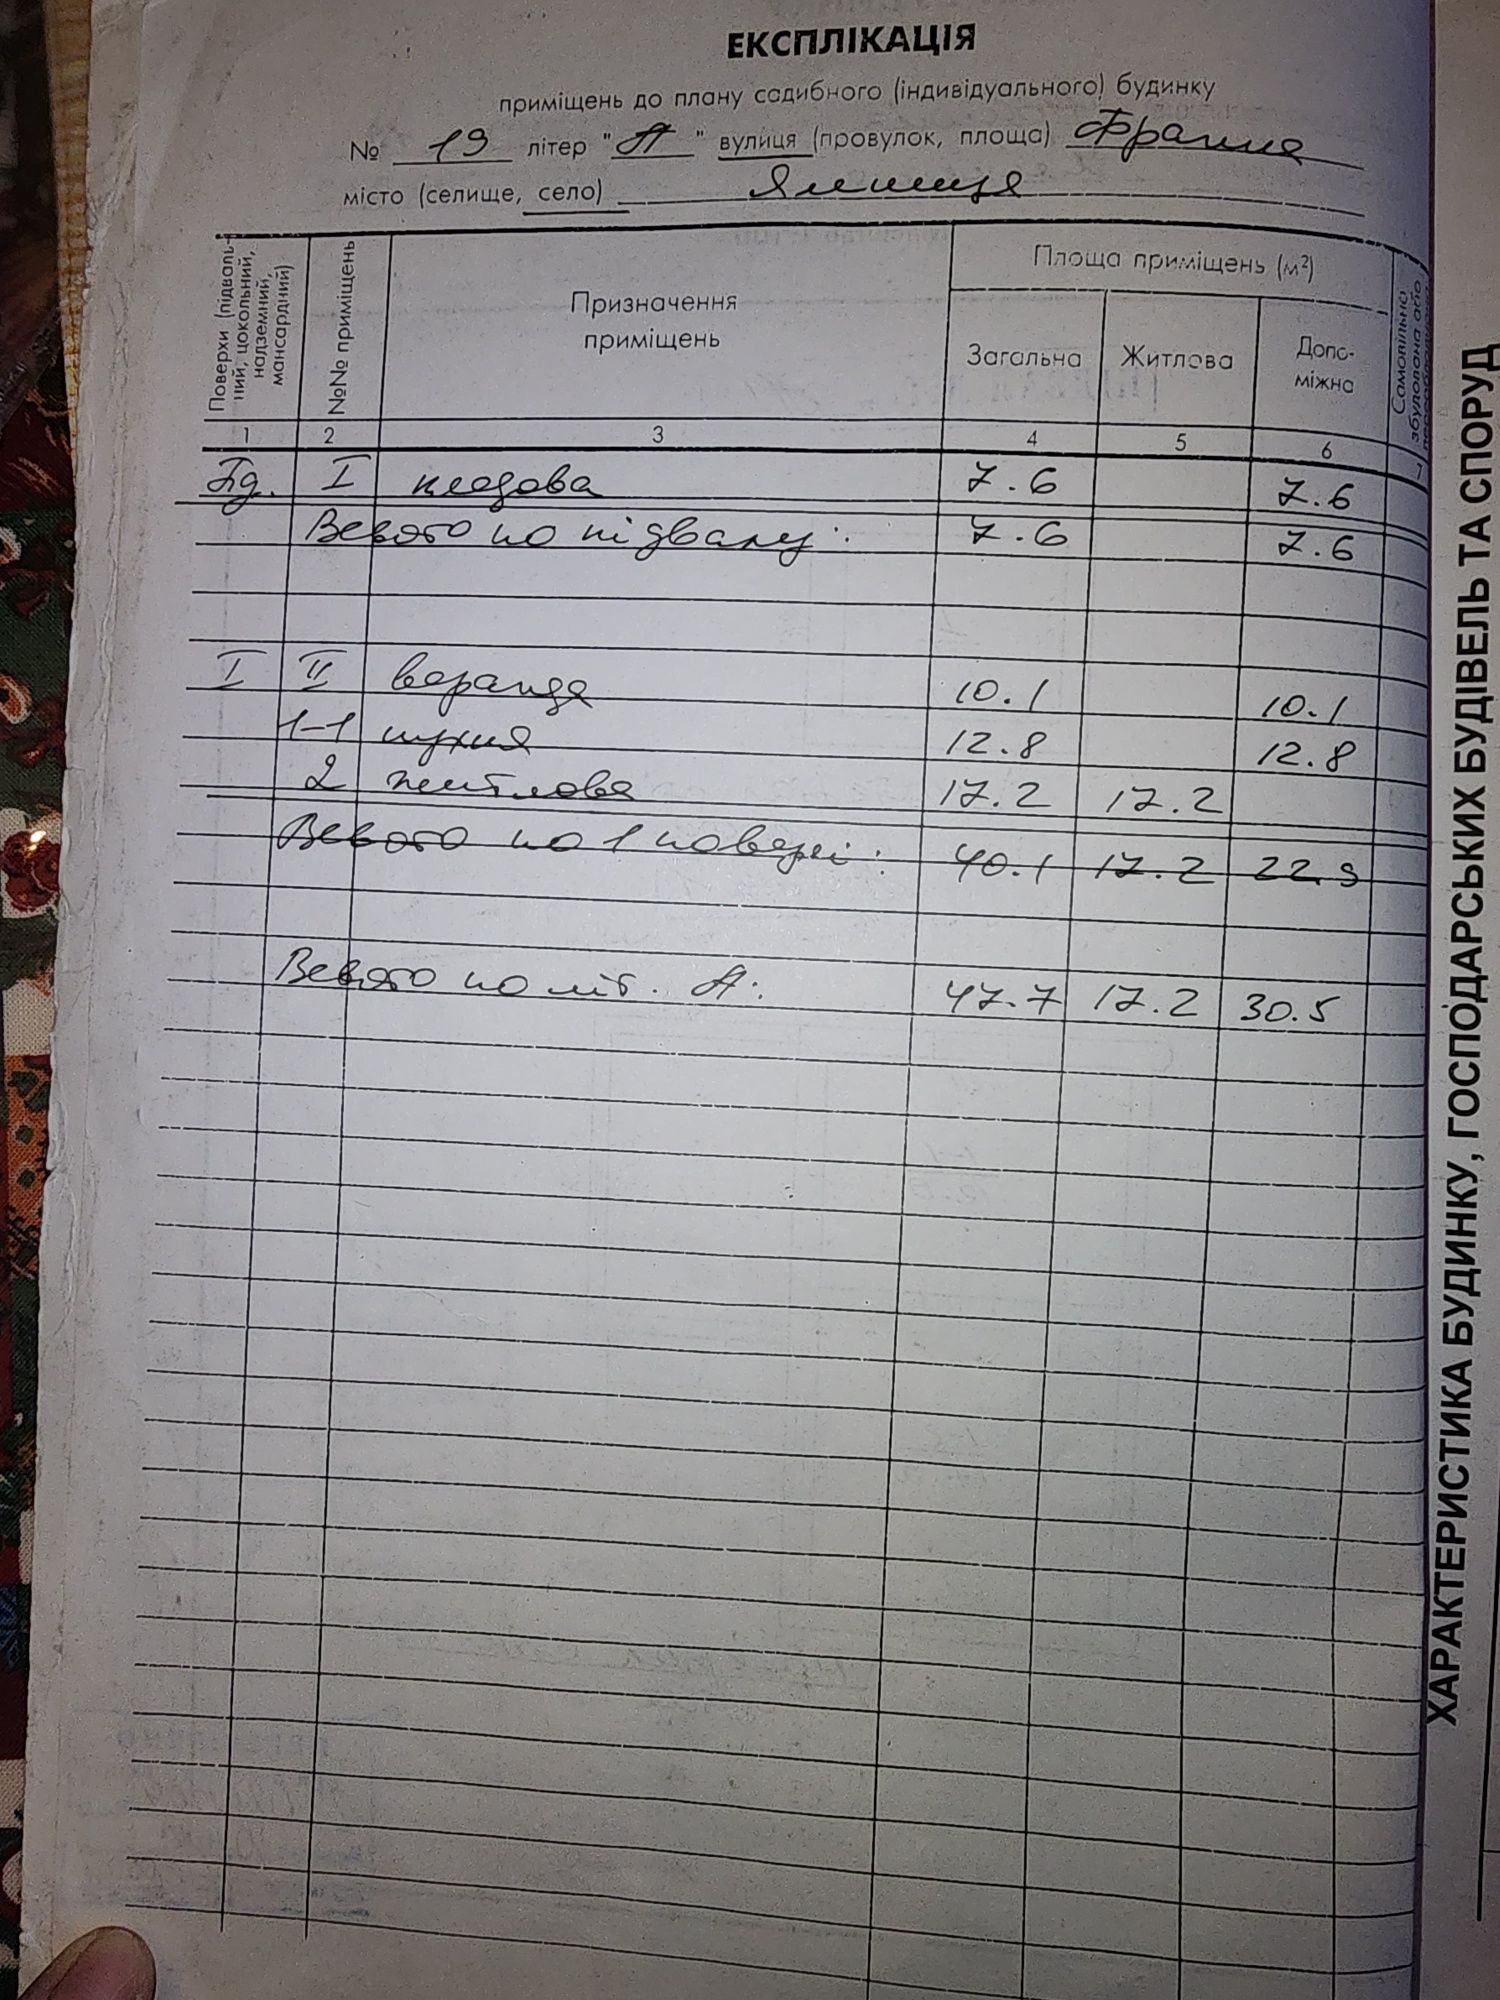 ЕКСПЛІКАЦІЯ
приміщень до плану садибного (індивідуального) будинку
№ 19 літер "А" вулиця (провулок, площа) Франка
місто (селище, село) Ямниця
Поверхи (підвальний, цокольний, надземний, мансардний)
№№ приміщень
Призначення приміщень
Площа приміщень (м²)
Загальна Житлова Допоміжна
Самовільно збудована або
1 2 3 4 5 6 7
Пд. I кладова 7.6 7.6
Всього по підвалу: 7.6 7.6
I II веранда 10.1 10.1
1-1 кухня 12.8 12.8
2 житлова 17.2 17.2
Всього по 1 поверсі: 40.1 17.2 22.9
Всього по літ. А: 47.7 17.2 30.5
ХАРАКТЕРИСТИКА БУДИНКУ, ГОСПОДАРСЬКИХ БУДІВЕЛЬ ТА СПОРУД